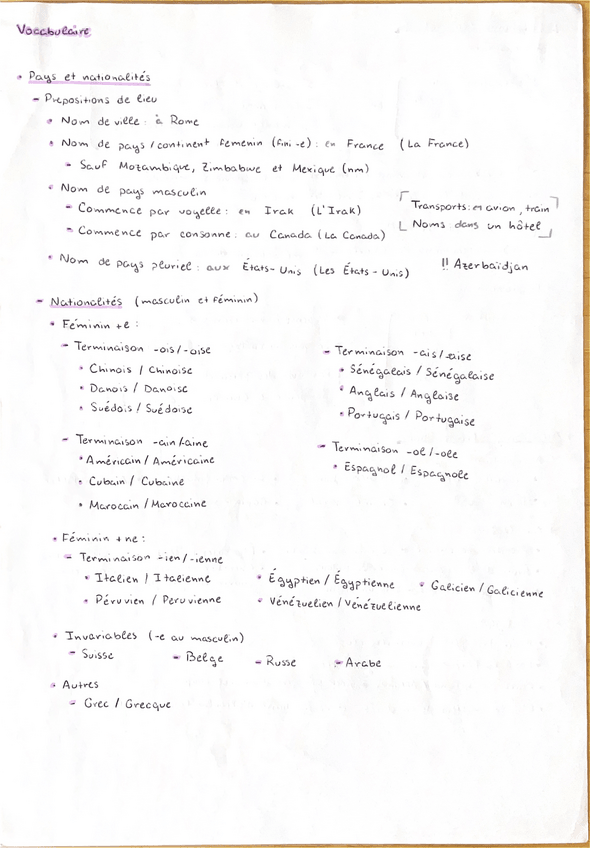 Vocabulaire
• Pays et nationalités
- Prepositions de lieu
• Nom de ville : à Rome
• Nom de pays / continent femenin (fini -e) : en France (La France)
- Sauf Mozambique, Zimbabwe et Mexique (nm)
• Nom de pays masculin
- Commence par voyelle : en Irak (L'Irak)
- Commence par consonne : au Canada (La Canada)
Transports : en avion, train
Noms dans un hôtel
• Nom de pays pluriel : aux États-Unis (Les États-Unis)
!! Azerbaïdjan
- Nationalités (masculin et féminin)
• Féminin +e :
- Terminaison -ois/-oise
• Chinois / Chinoise
• Danois / Danoise
• Suédois / Suédoise
- Terminaison -ais/-aise
• Sénégalais / Sénégalaise
• Anglais / Anglaise
• Portugais / Portugaise
- Terminaison -ain/aine
• Américain / Américaine
• Cubain / Cubaine
• Marocain / Marocaine
- Terminaison -ol/-ole
• Espagnol / Espagnole
• Féminin +ne :
- Terminaison -ien/-ienne
• Italien / Italienne
• Péruvien / Peruvienne
• Égyptien / Égyptienne
• Vénézuelien / Vénézuelienne
• Galicien / Galicienne
• Invariables (-e au masculin)
- Suisse - Belge - Russe - Arabe
• Autres
- Grec / Grecque